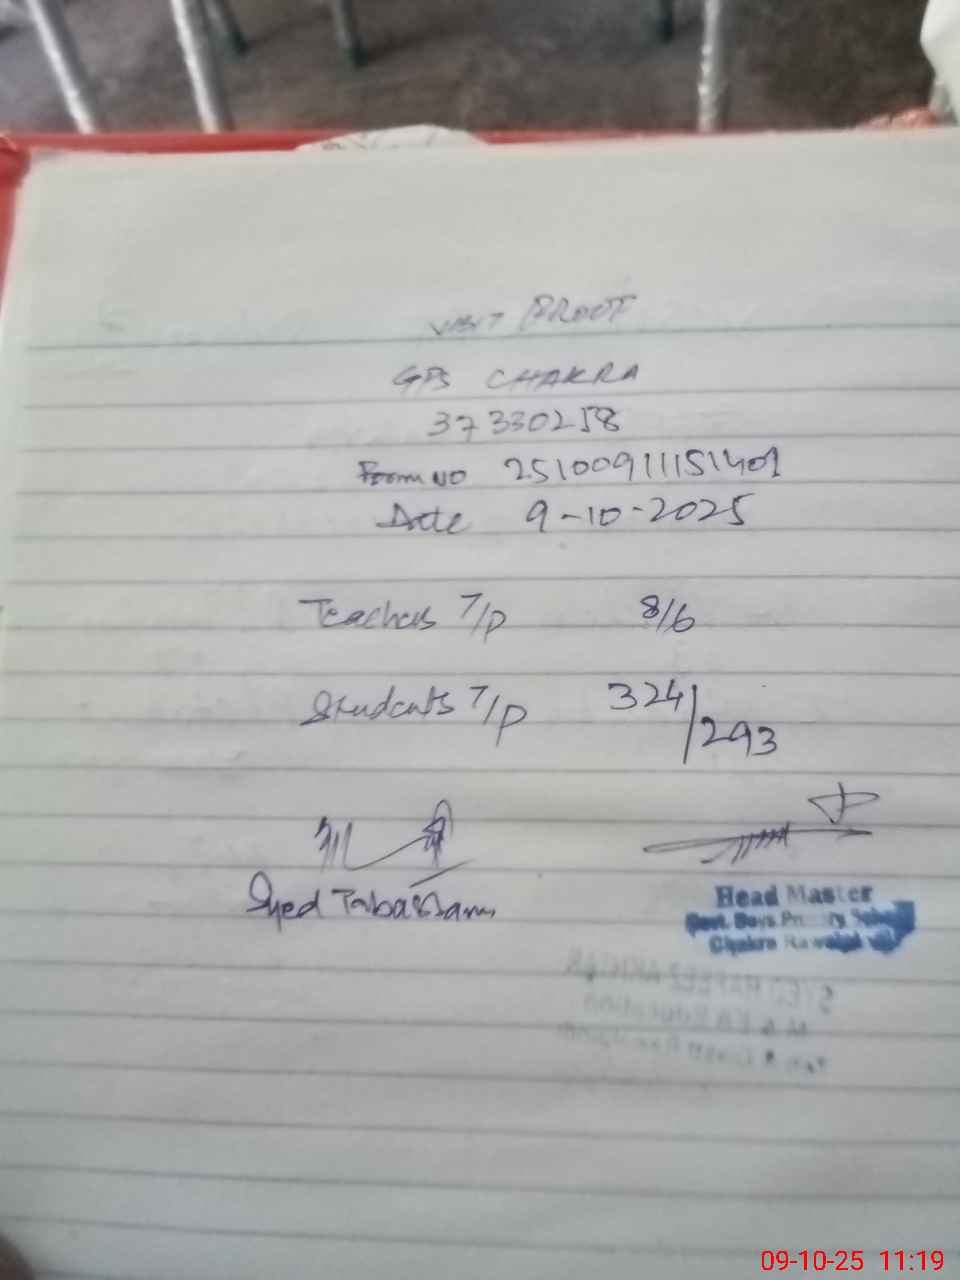 VISIT PROOF
GPS CHAKRA
37330258
Form NO 25100911151401
Date 9-10-2025
Teachers T/P 8/6
Students T/P 324/293
Syed Tabassam
Head Master
Govt. Boys Primary School
Chakra Rawalpindi
09-10-25 11:19